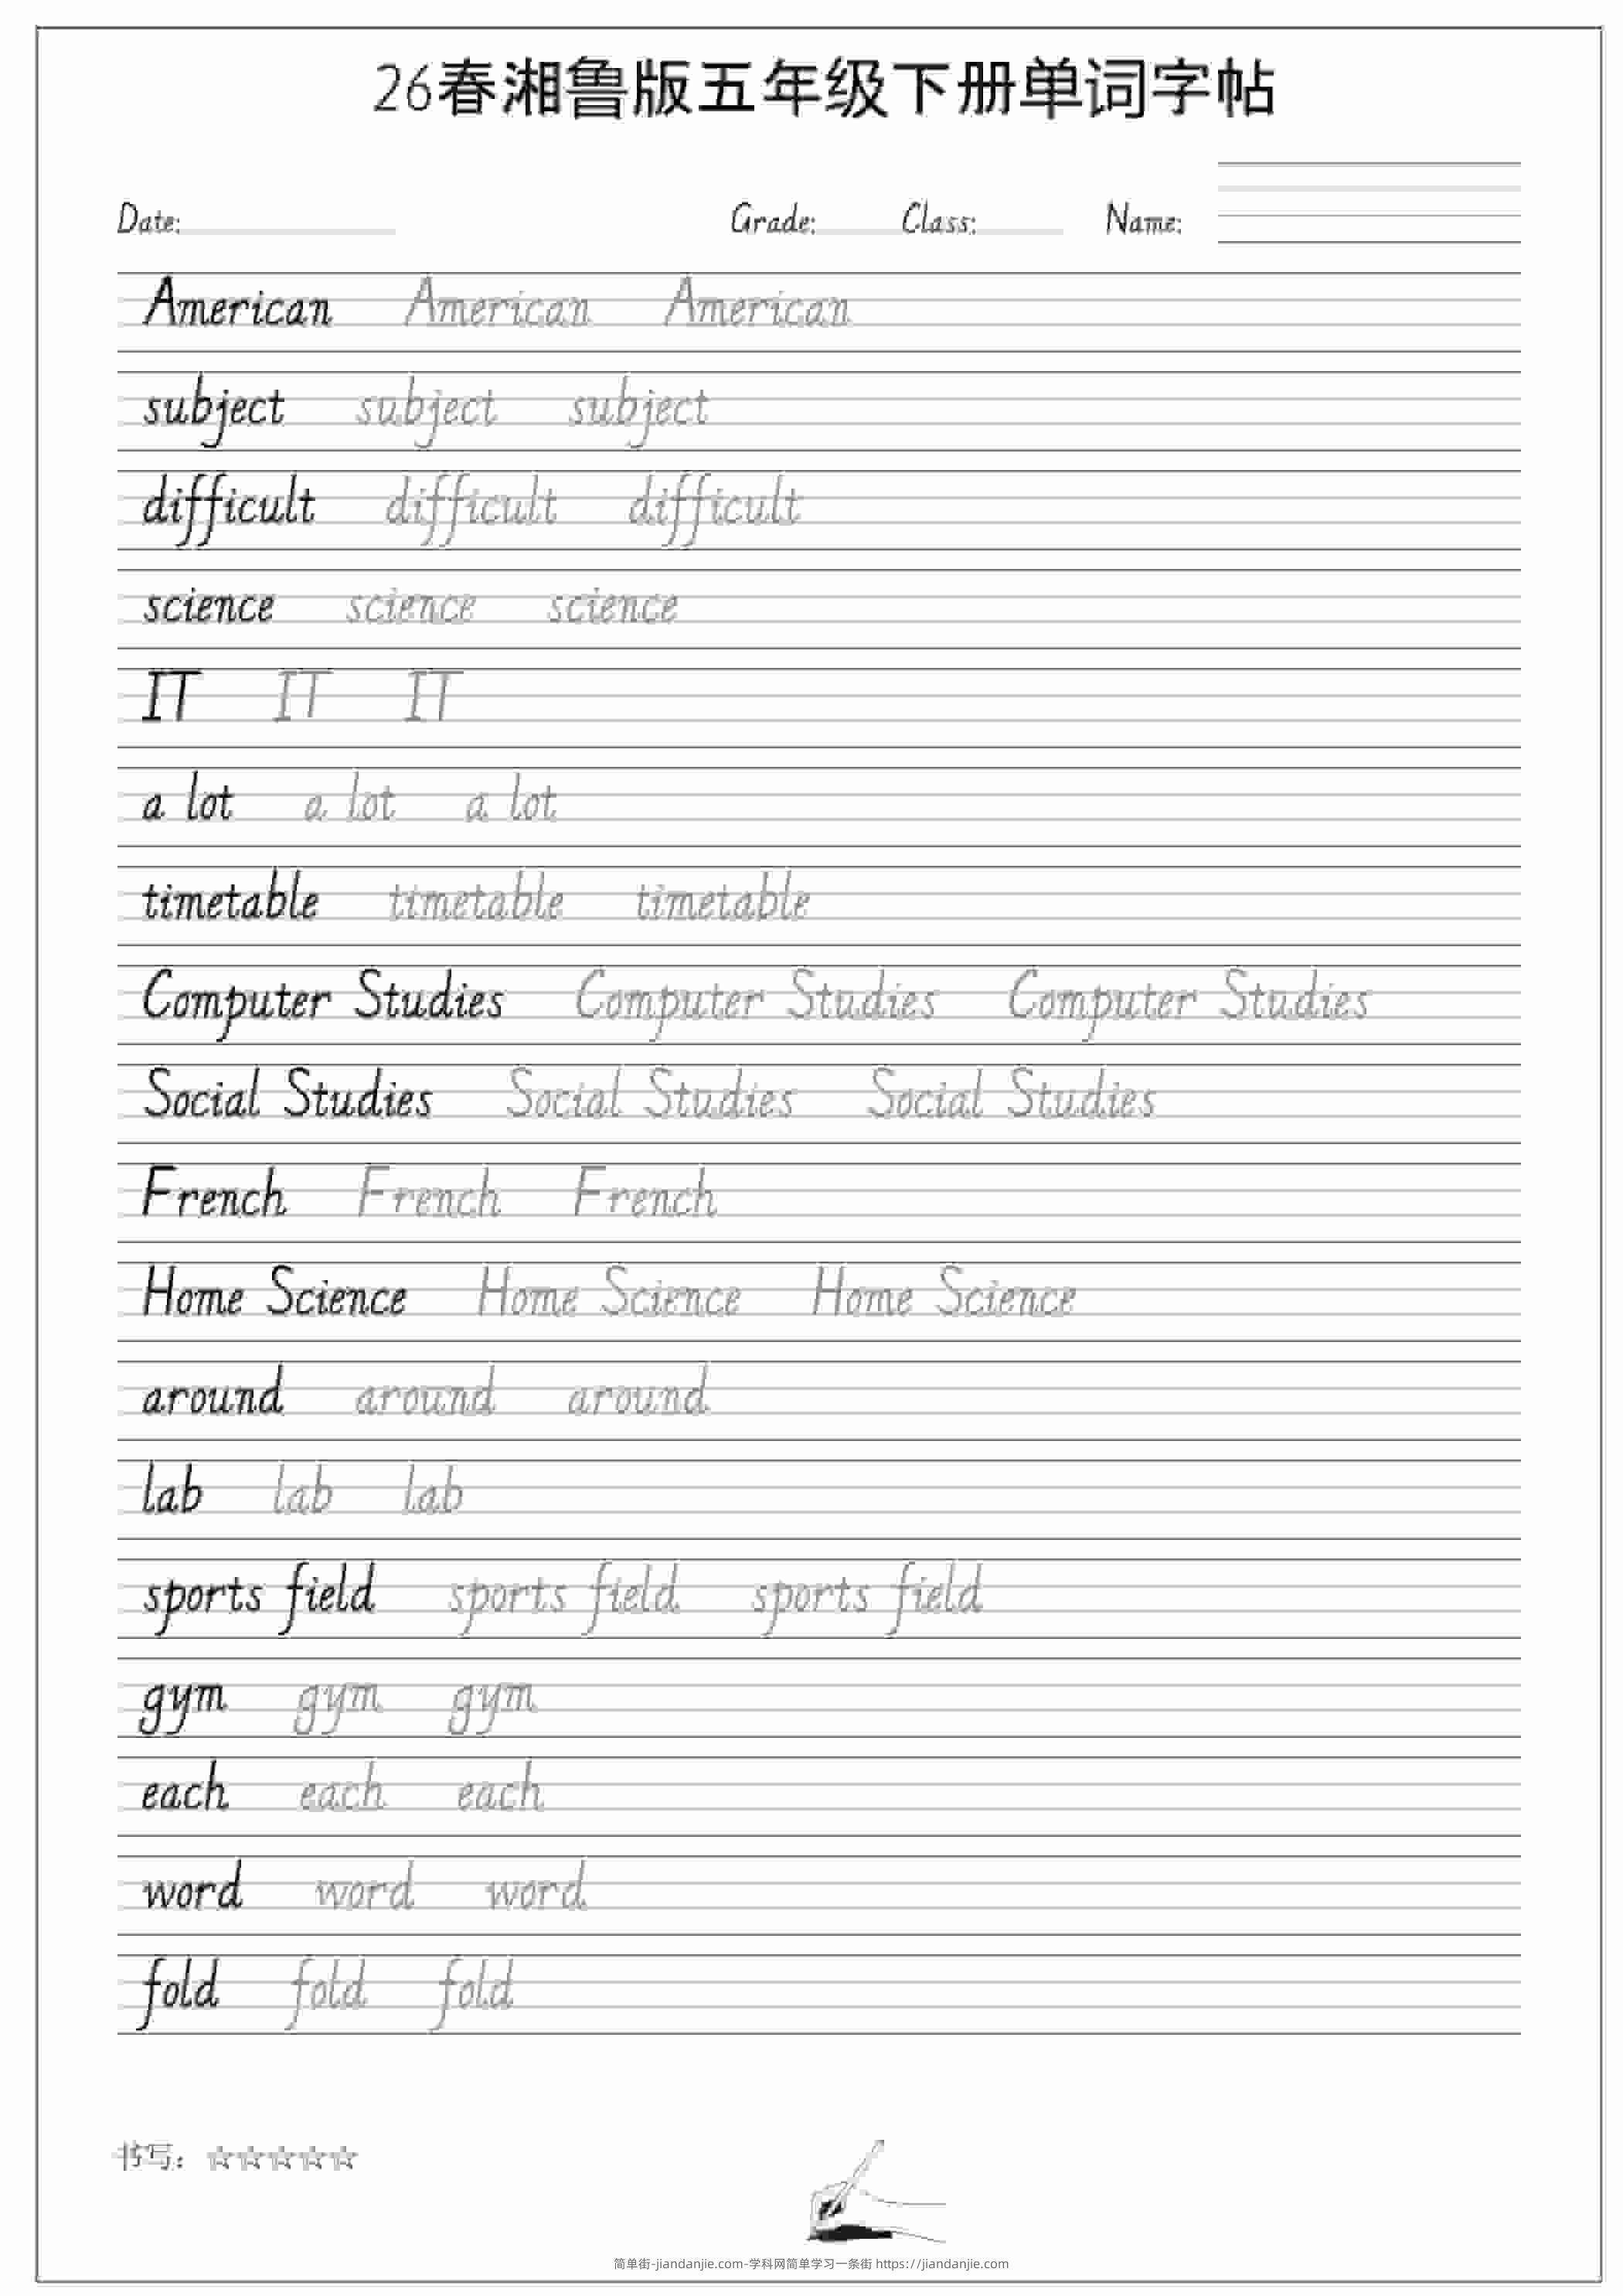 26春湘鲁版五年级下册单词字帖
Date: Grade: Class: Name:
American American American
subject subject subject
difficult difficult difficult
science science science
IT IT IT
a lot a lot a lot
timetable timetable timetable
Computer Studies Computer Studies Computer Studies
Social Studies Social Studies Social Studies
French French French
Home Science Home Science Home Science
around around around
lab lab lab
sports field sports field sports field
gym gym gym
each each each
word word word
fold fold fold
书写：☆☆☆☆☆
简单街-jiandanjie.com-学科网简单学习一条街 https://jiandanjie.com